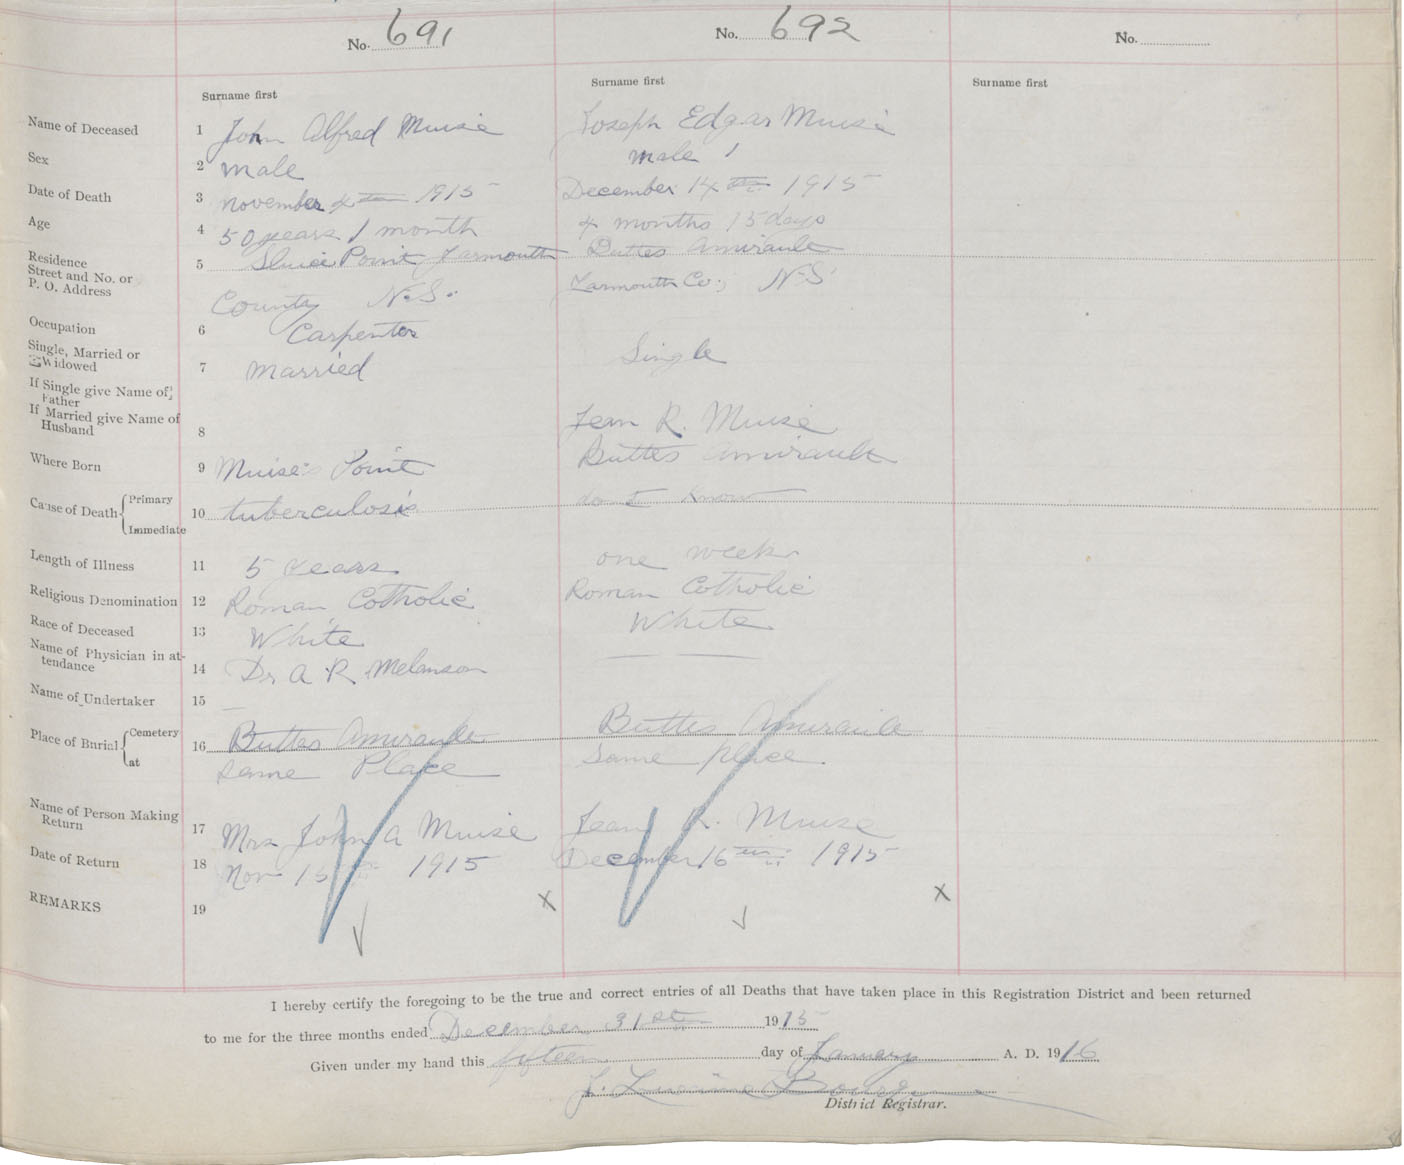 No. 691
No. 692
No.
Surname first
Surname first
Surname first
Name of Deceased 1 John Alfred Muise Joseph Edgar Muise
Sex 2 male male
Date of Death 3 November 4th 1915 December 14th 1915
Age 4 50 years 1 month 4 months 15 days
Residence
Street and No. or
P. O. Address
5 Sluice Point Yarmouth Buttes Amirault
County N.S. Yarmouth Co., N.S
Occupation 6 Carpenter
Single, Married or
Widowed
7 married Single
If Single give Name of
Father
If Married give Name of
Husband
8 Jean R. Muise
Where Born 9 Muise's Point Buttes Amirault
Cause of Death { Primary
Immediate
10 tuberculosis don't know
Length of Illness 11 5 years one week
Religious Denomination 12 Roman Cotholic Roman Cotholic
Race of Deceased 13 White White
Name of Physician in at-
tendance
14 Dr A. R. Melanson
Name of Undertaker 15
Place of Burial { Cemetery
at
16 Buttes Amirault Buttes Amirault
same Place Same place.
Name of Person Making
Return
17 Mrs John A Muise Jean R. Muise
Date of Return 18 Nov 15 1915 December 16th 1915
REMARKS 19 x x
I hereby certify the foregoing to be the true and correct entries of all Deaths that have taken place in this Registration District and been returned
to me for the three months ended December 31st 1915
Given under my hand this fifteen day of January A. D. 1916
J.
District Registrar.